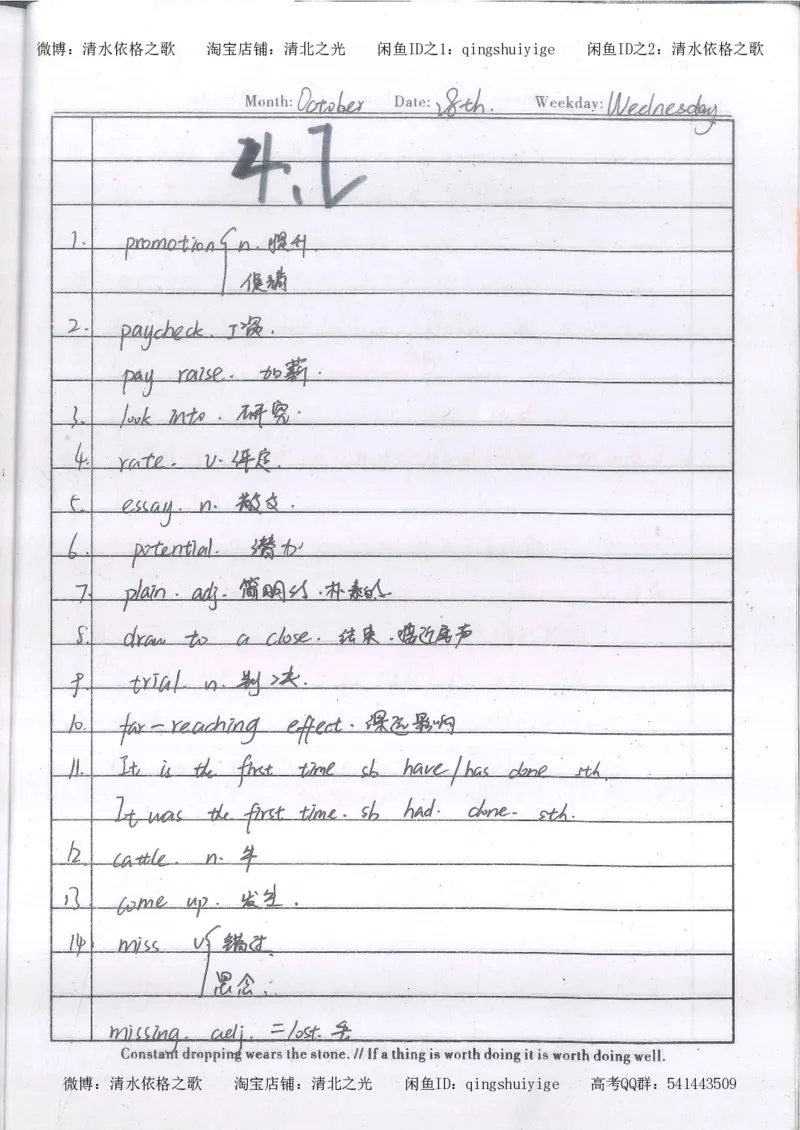 微博：清水依格之歌 淘宝店铺：清北之光 闲鱼ID之1：qingshuiyige 闲鱼ID之2：清水依格之歌
Month: October Date: 28th. Weekday: Wednesday
1. promotion { n. 提升.
促销
2. paycheck. 工资.
pay raise. 加薪.
3. look into. 研究.
4. rate. v. 评定.
5. essay. n. 散文.
6. potential. 潜力
7. plain. adj. 简明的.朴素的
8. draw to a close. 结束.临近尾声
9. trial. n. 判决.
10. far-reaching effect. 深远影响
11. It is the first time sb have/has done sth.
It was the first time. sb had. done. sth.
12. cattle. n. 牛
13. come up. 发生.
14. miss v { 错过.
思念.
missing. adj. = lost.
Constant dropping wears the stone. // If a thing is worth doing it is worth doing well.
微博：清水依格之歌 淘宝店铺：清北之光 闲鱼ID：qingshuiyige 高考QQ群：541443509